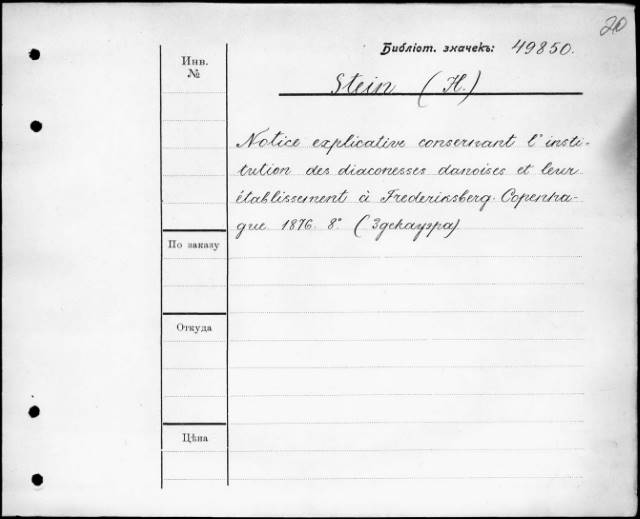 20
Библіот. значекъ: 49850.
Инв.
№
Stein (H.)
Notice explicative consernant l'insti-
tution des diaconesses danoises et leur
établissement à Frederiksberg. Copenha-
gue. 1876. 8° (Здекауэра)
По заказу
Откуда
Цѣна